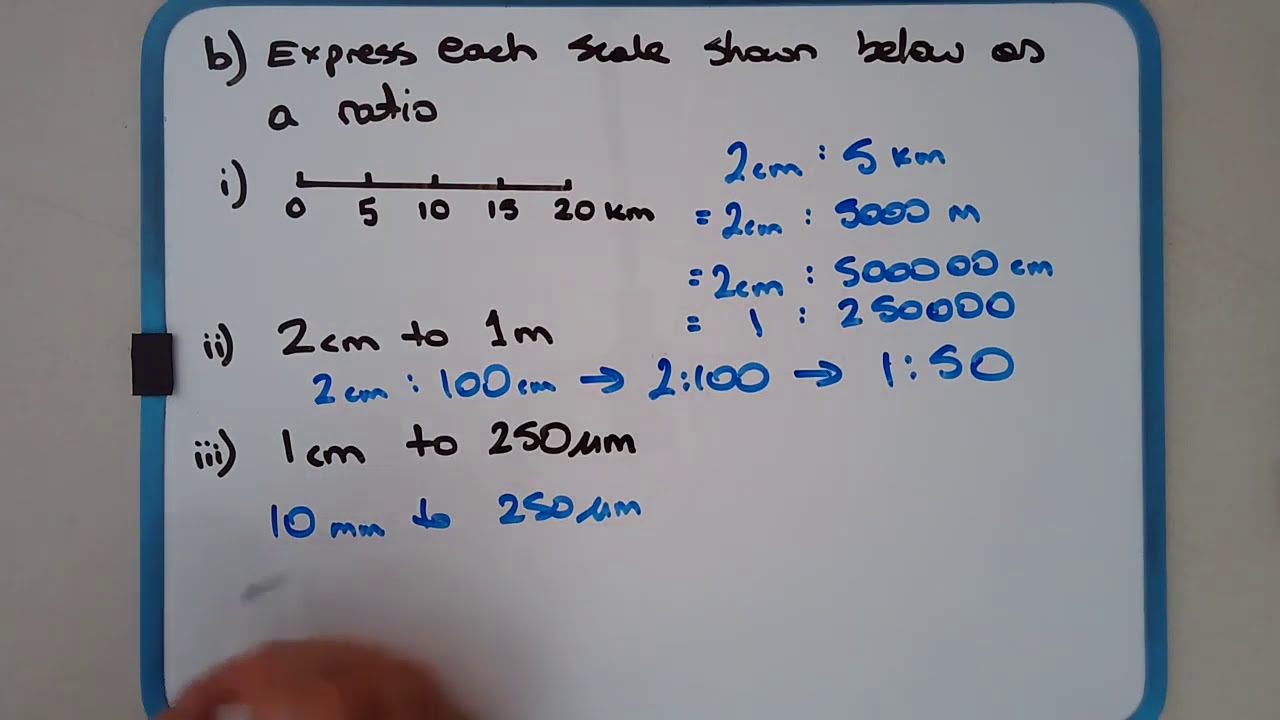 b) Express each scale shown below as
a ratio
i) 0 5 10 15 20 km
2cm : 5 km
= 2cm : 5000 m
= 2cm : 500000 cm
= 1 : 250000
ii) 2cm to 1m
2cm : 100cm → 2:100 → 1:50
iii) 1cm to 250μm
10 mm to 250μm